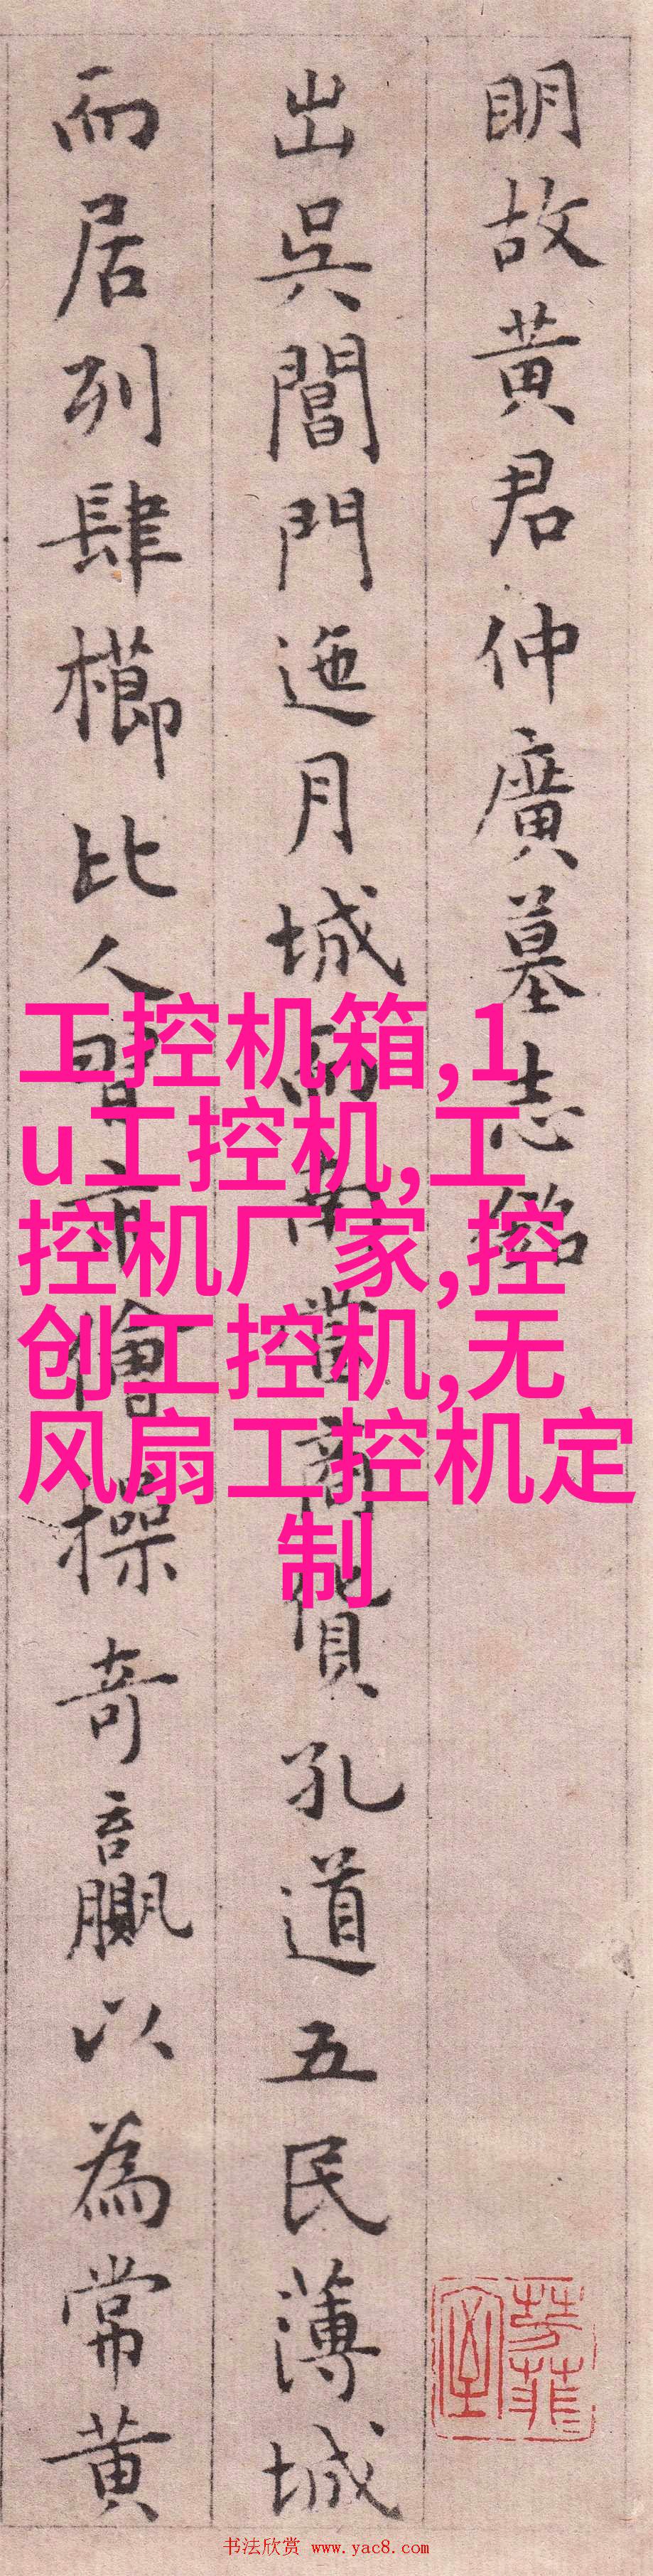 明故黄君仲廣墓志銘
出吳閶門迤月城而南當商賈孔道五民薄城
而居列肆櫛比人習市儈操奇贏以為常黄
工控机箱,1
u工控机,工
控机厂家,控
创工控机,无
风扇工控机定
制
书法欣赏 www.yac8.com